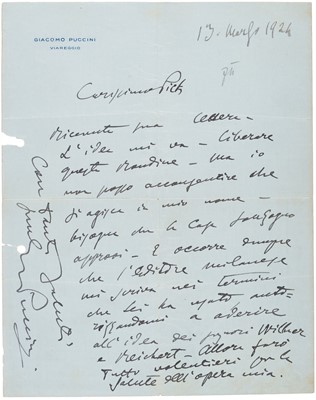 GIACOMO PUCCINI
VIAREGGIO
13 marzo 1924
Carissimo Pick
Ricevuta sua lettera -
L'idea mi va - liberare
questa Rondine - ma io
non posso acconsentire che
si agisca in mio nome -
bisogna che la Casa Sonzogno
approvi - E occorre sempre
che l'Editore milanese
mi scriva nei termini
che lei ha usato auto-
rizzandomi a aderire
all'idea dei signori Willner
e Reichert - Allora farò
tutto volentieri per la
salute dell'opera mia.
Con tanti saluti
Puccini